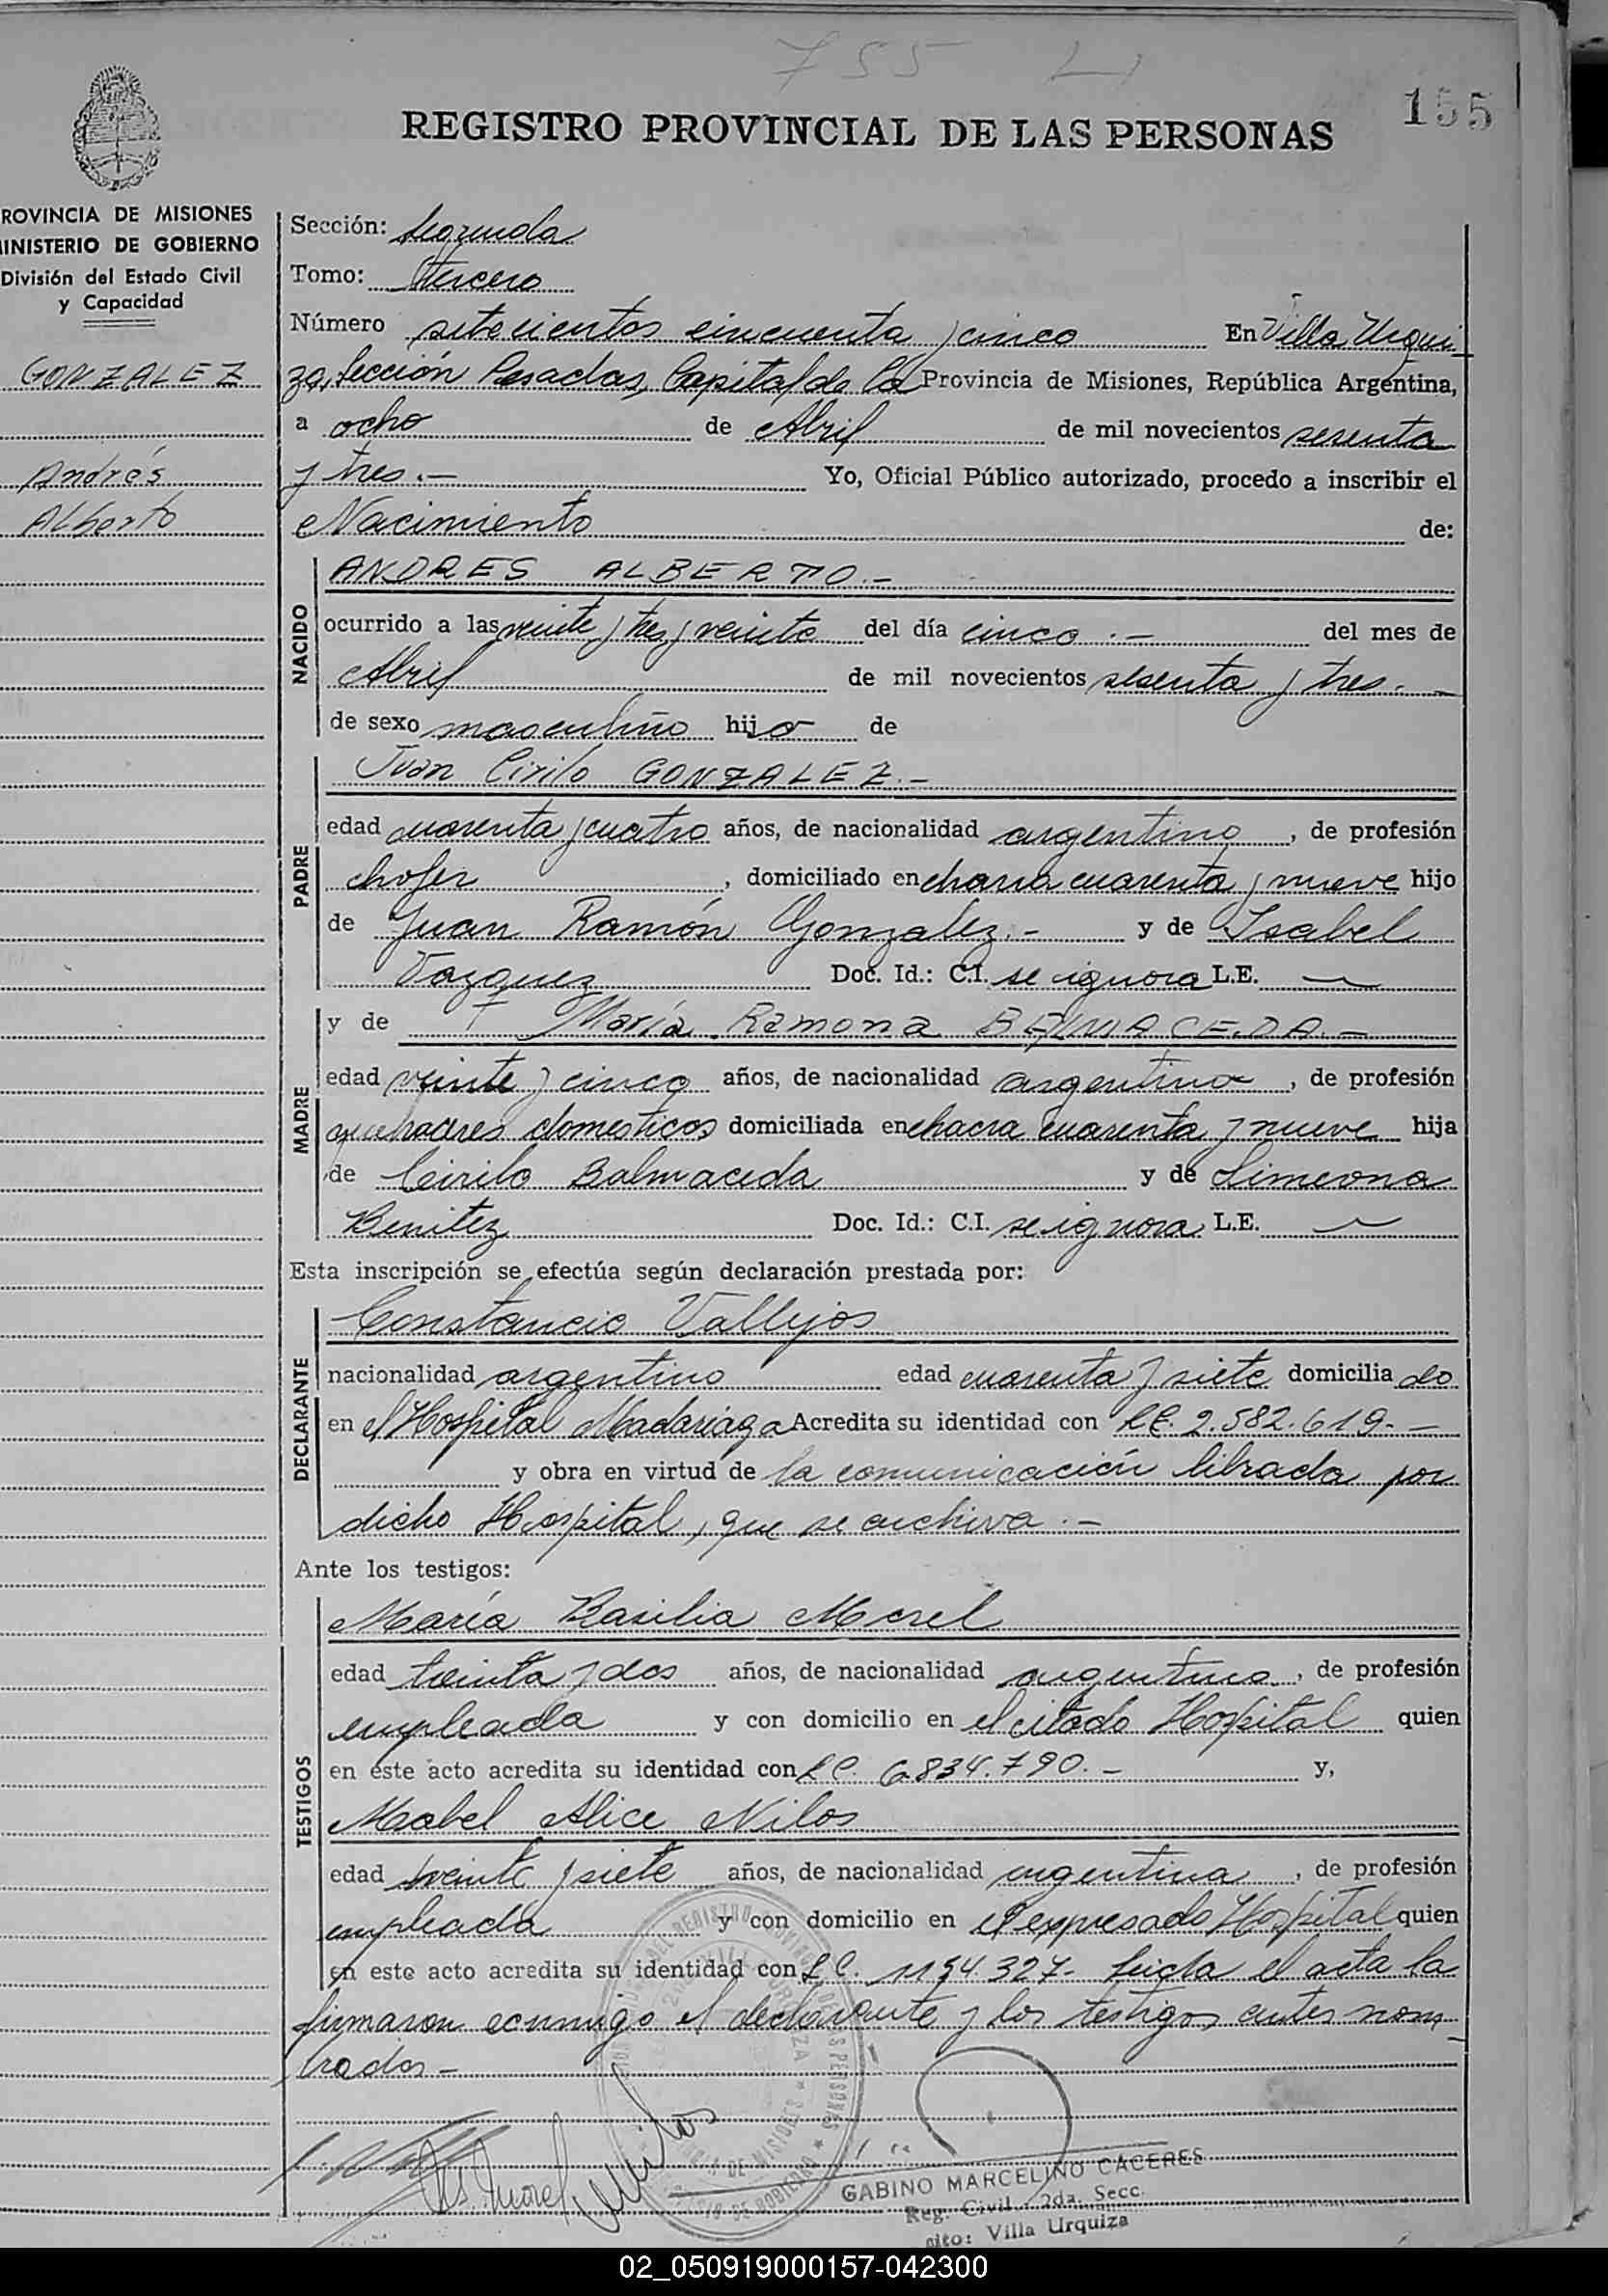 755 L1
155
REGISTRO PROVINCIAL DE LAS PERSONAS
ROVINCIA DE MISIONES
INISTERIO DE GOBIERNO
División del Estado Civil
y Capacidad
GONZALEZ
Andrés
Alberto
Sección: Segunda
Tomo: tercero
Número setecientos cincuenta y cinco En Villa Urqui-
za, Sección Posadas, Capital de la Provincia de Misiones, República Argentina,
a ocho de Abril de mil novecientos sesenta
y tres.— Yo, Oficial Público autorizado, procedo a inscribir el
Nacimiento de:
NACIDO
ANDRES ALBERTO.—
ocurrido a las veinte y tres y veinte del día cinco.— del mes de
Abril de mil novecientos sesenta y tres.—
de sexo masculino hijo de
PADRE
Juan Cirilo GONZALEZ.—
edad cuarenta y cuatro años, de nacionalidad argentino, de profesión
chofer, domiciliado en chacra cuarenta y nueve hijo
de Juan Ramón Gonzalez.— y de Isabel
Vazquez Doc. Id.: C.I. se ignora L.E. —
MADRE
y de María Ramona BALMACEDA.—
edad veinte y cinco años, de nacionalidad argentina, de profesión
quehaceres domesticos domiciliada en chacra cuarenta y nueve hija
de Cirilo Balmaceda y de Simeona
Benitez Doc. Id.: C.I. se ignora L.E. —
Esta inscripción se efectúa según declaración prestada por:
DECLARANTE
Constancio Vallejos
nacionalidad argentino edad cuarenta y siete domiciliado
en el Hospital Madariaga Acredita su identidad con L.E. 2.582.619.—
y obra en virtud de la comunicación librada por
dicho Hospital, que se archiva.—
Ante los testigos:
TESTIGOS
María Basilia Morel
edad treinta y dos años, de nacionalidad argentina, de profesión
empleada y con domicilio en el citado Hospital quien
en este acto acredita su identidad con L.C. 6.834.790.— y,
Mabel Alice Nilos
edad veinte y siete años, de nacionalidad argentina, de profesión
empleada y con domicilio en el expresado Hospital quien
en este acto acredita su identidad con L.C. 1194.327- Leida el acta la
firmaron conmigo el declarante y los testigos antes nom-
brados—
GABINO MARCELINO CACERES
Reg. Civil - 2da. Secc.
Villa Urquiza
02_050919000157-042300